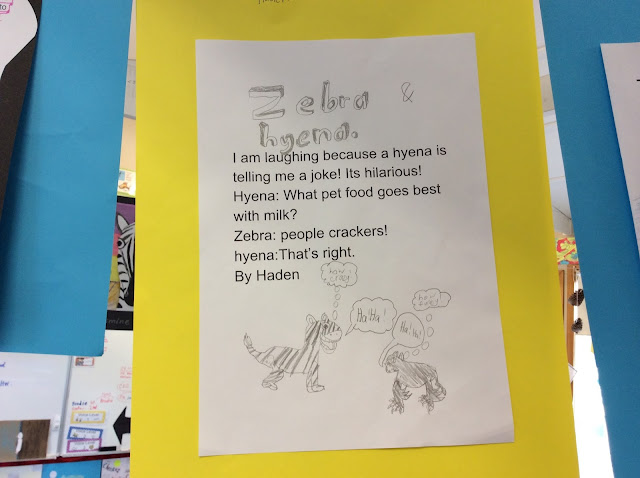 to
Zebra &
hyena.
I am laughing because a hyena is
telling me a joke! Its hilarious!
Hyena: What pet food goes best
with milk?
Zebra: people crackers!
hyena:That's right.
By Haden
how
crazy
Ha!Ha!
how
funny
Ha!Ha!